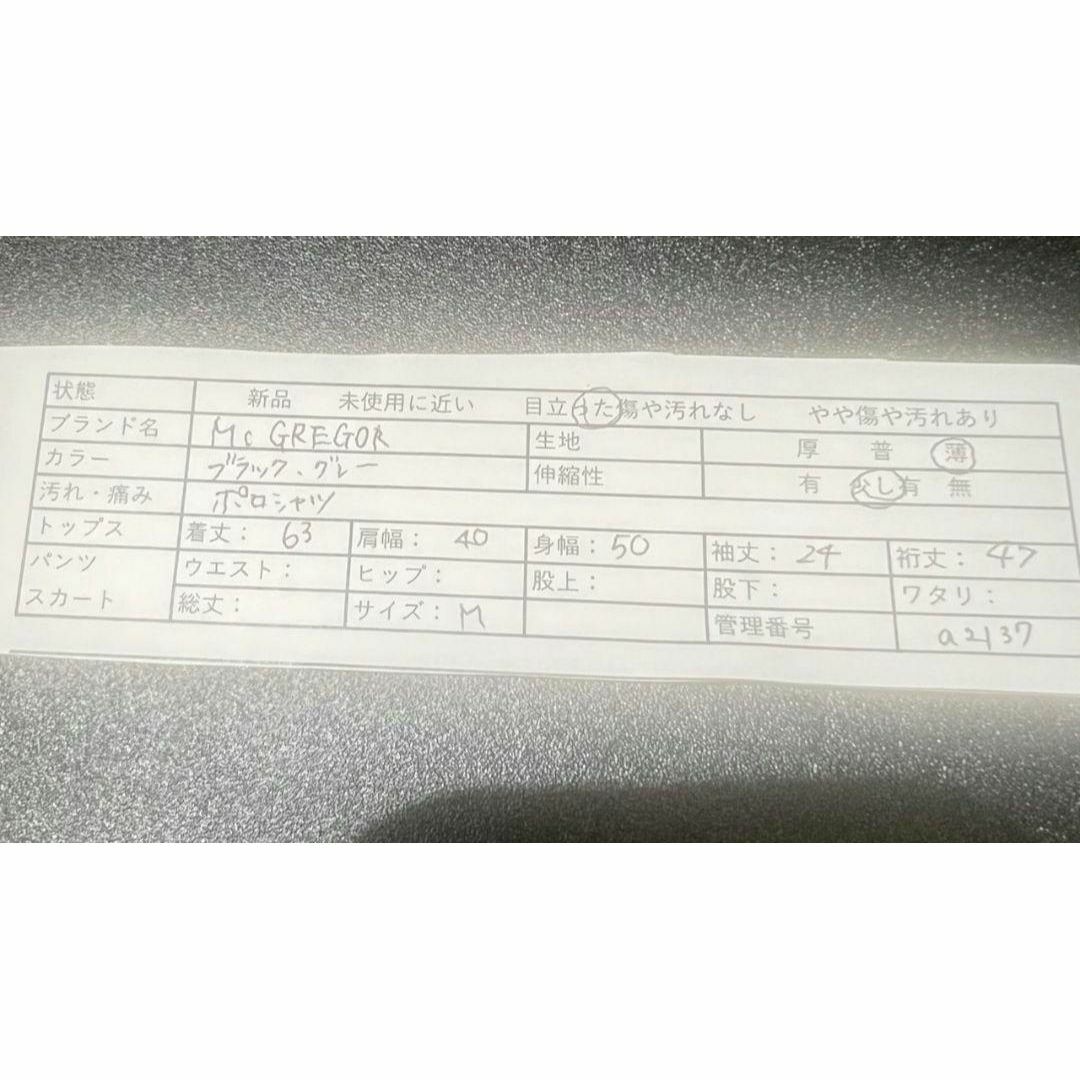 状態 新品 未使用に近い 目立った傷や汚れなし やや傷や汚れあり
ブランド名 Mc GREGOR 生地 厚 普 薄
カラー ブラック、グレー 伸縮性 有 少し有 無
汚れ・痛み ポロシャツ
トップス 着丈： 63 肩幅： 40 身幅： 50 袖丈： 24 裄丈： 47
パンツ ウエスト： ヒップ： 股上： 股下： ワタリ：
スカート 総丈： サイズ： M 管理番号 a2137